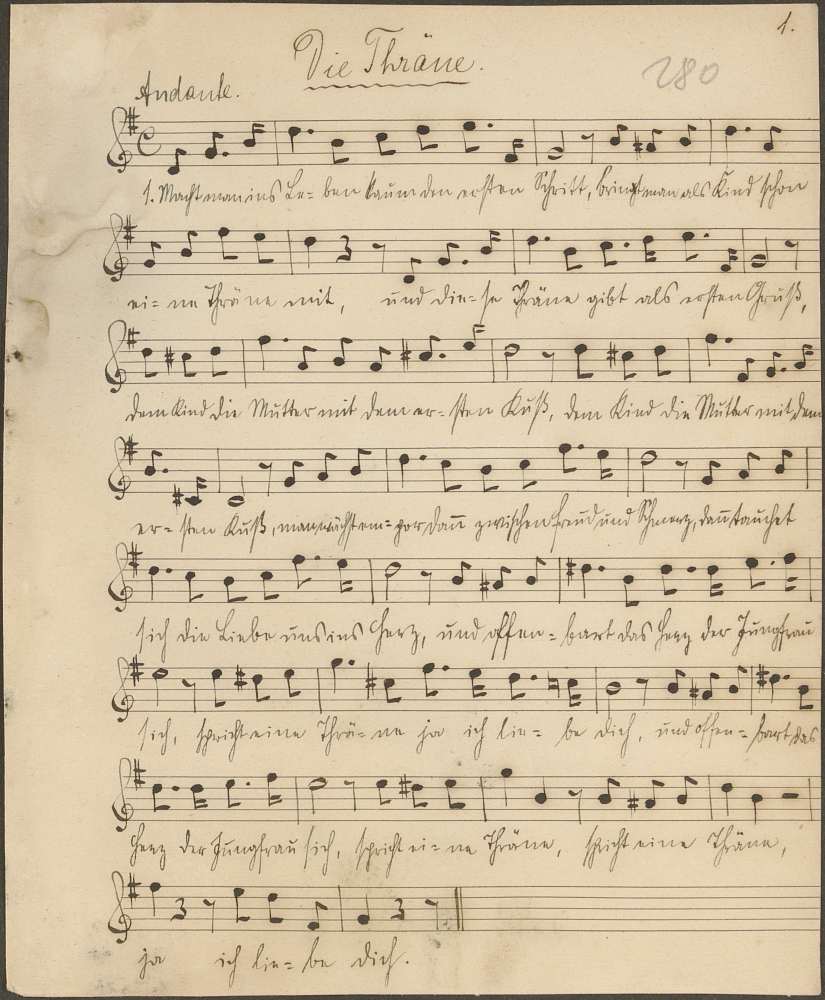 1.
Die Thräne.
280
Andante.
1. Macht man ins Le- ben kaum den ersten Schritt, bringt man als Kind schon
ei- ne Thräne mit, und die- se Thräne gibt als ersten Gruß,
dem Kind die Mutter mit dem er- sten Kuß, dem Kind die Mutter mit dem
er- sten Kuß, man wächst em- por dann zwischen Freud und Schmerz, dann tauchet
sich die Liebe uns ins Herz, und offen- bart das Herz der Jungfrau
sich, spricht eine Thrä- ne ja ich lie- be dich, und offen- bart das
Herz der Jungfrau sich, spricht ei- ne Thräne, spricht eine Thräne,
ja ich lie- be dich.